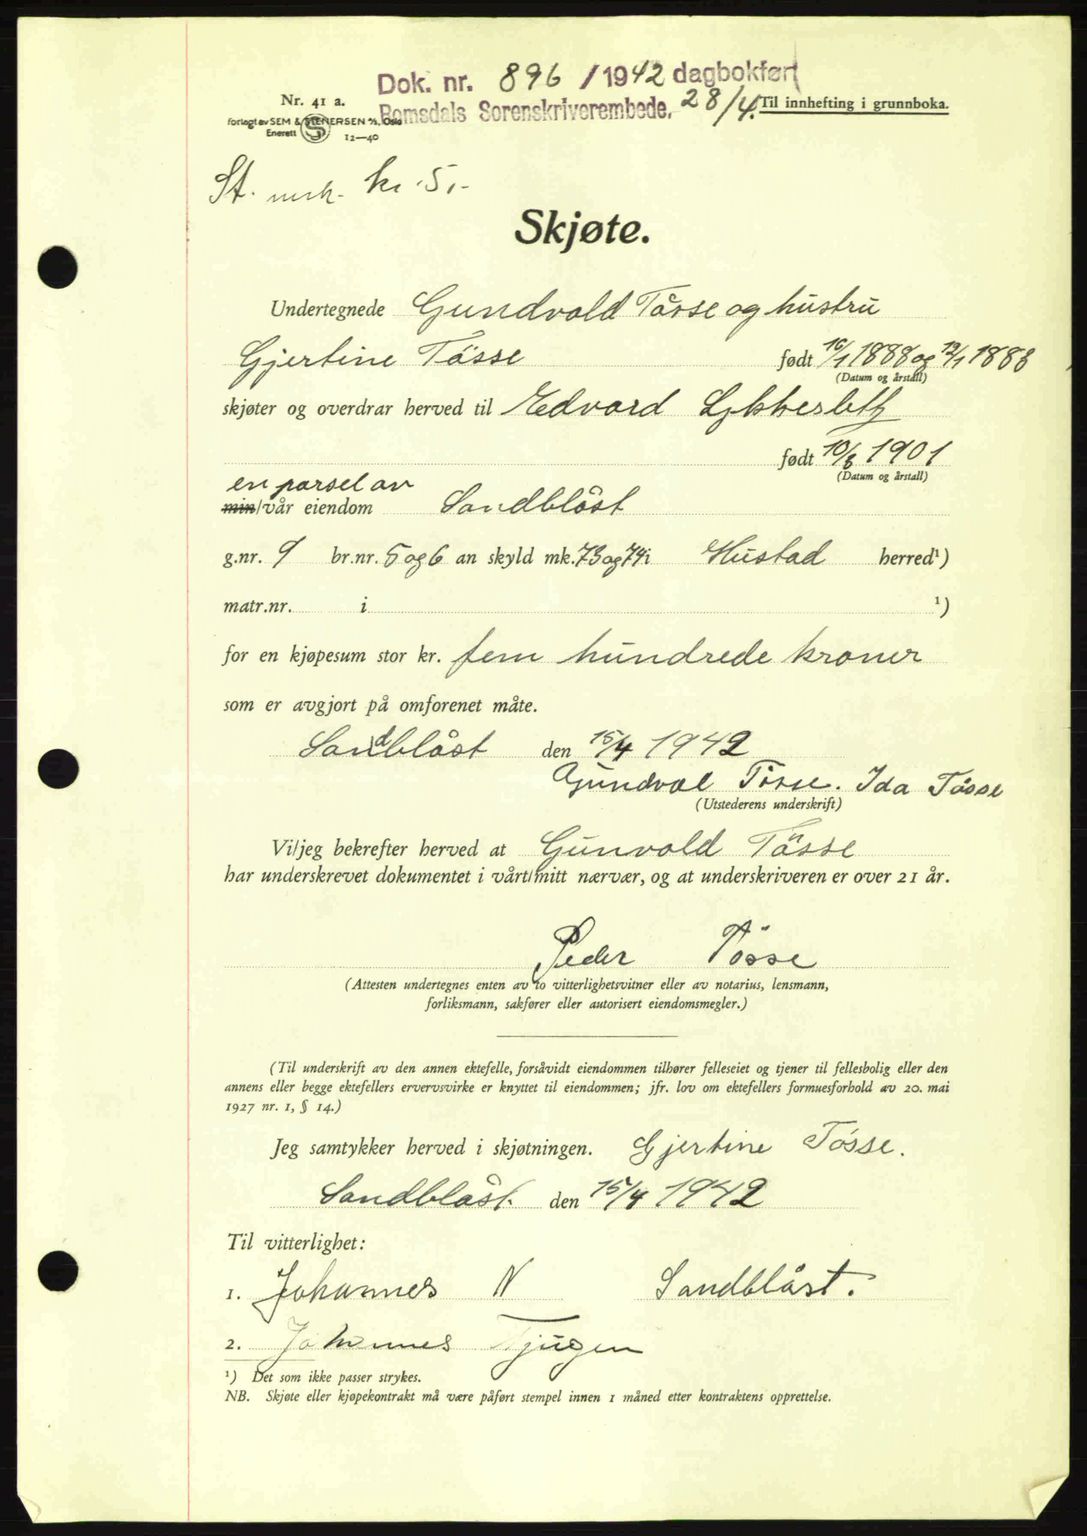 Dok. nr. 896 / 1942 dagbokført
Romsdals Sorenskriverembede. 28/4.
Nr. 41 a.
Til innhefting i grunnboka.
forlagt av SEM & STENERSEN A/S, Oslo
Enerett S 12—40
St. mrk. kr. 5,-
Skjøte.
Undertegnede Gundvold Tösse og hustru
Gjertine Tösse født 16/1 1888 og 12/1 1888
(Datum og årstall)
skjøter og overdrar herved til Edvard
født 10/8 1901
(Datum og årstall)
en parsel av
min/vår eiendom Sandblåst
g.nr. 9 br.nr. 5 og 6 an skyld mk. 73 og 74 i Hustad herred¹)
matr.nr. i ¹)
for en kjøpesum stor kr. fem hundrede kroner
som er avgjort på omforenet måte.
Sandblåst den 15/4 1942
Gundval Tösse. Ida Tösse
(Utstederens underskrift)
Vi/jeg bekrefter herved at Gunvold Tösse
har underskrevet dokumentet i vårt/mitt nærvær, og at underskriveren er over 21 år.
Peder Tösse
(Attesten undertegnes enten av to vitterlighetsvitner eller av notarius, lensmann,
forliksmann, sakfører eller autorisert eiendomsmegler.)
(Til underskrift av den annen ektefelle, forsåvidt eiendommen tilhører felleseiet og tjener til fellesbolig eller den
annens eller begge ektefellers ervervsvirke er knyttet til eiendommen; jfr. lov om ektefellers formuesforhold av 20. mai
1927 nr. 1, § 14.)
Jeg samtykker herved i skjøtningen. Gjertine Tösse.
Sandblåst. den 15/4 1942
Til vitterlighet:
1. Johannes N Sandblåst.
2. Johannes Tjugen
¹) Det som ikke passer strykes.
NB. Skjøte eller kjøpekontrakt må være påført stempel innen 1 måned etter kontraktens opprettelse.